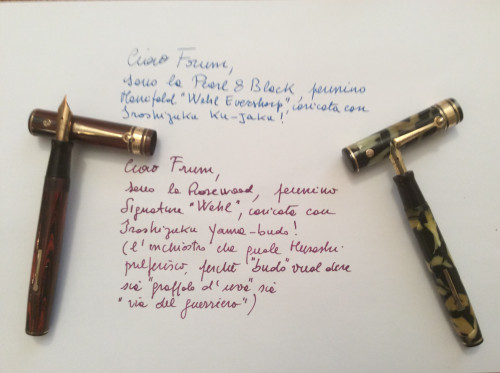 Ciao Forum,
sono la Pearl & Black, pennino
Manifold "Wahl Eversharp", caricata con
Iroshizuku Ku-Jaku!
Ciao Forum,
sono la Rosewood, pennino
Signature "Wahl", caricata con
Iroshizuku Yama-budo!
(l'inchiostro che quale Musashi
preferisco, perché "budo" vuol dire
sia "grappolo d'uva" sia
"via del guerriero")